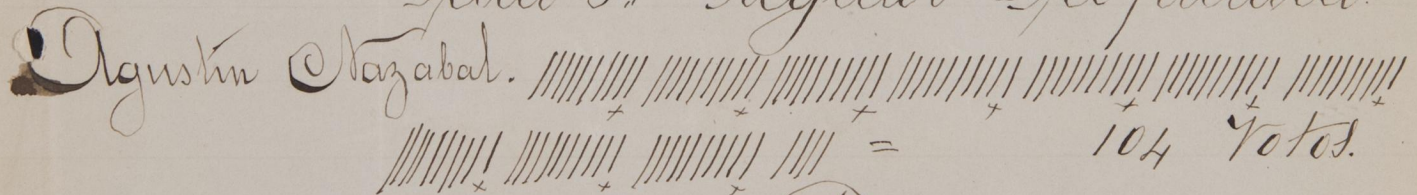 Agustin Nazabal. ////////// ////////// ////////// ////////// ////////// ////////// //////////
////////// ////////// ////////// //// = 104 Votos.